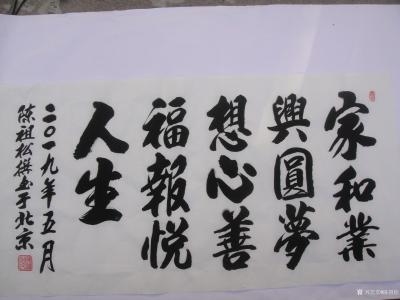 家和業
興圓夢
想心善
福報悦
人生
二〇一九年五月
陈祖松撰书于北京